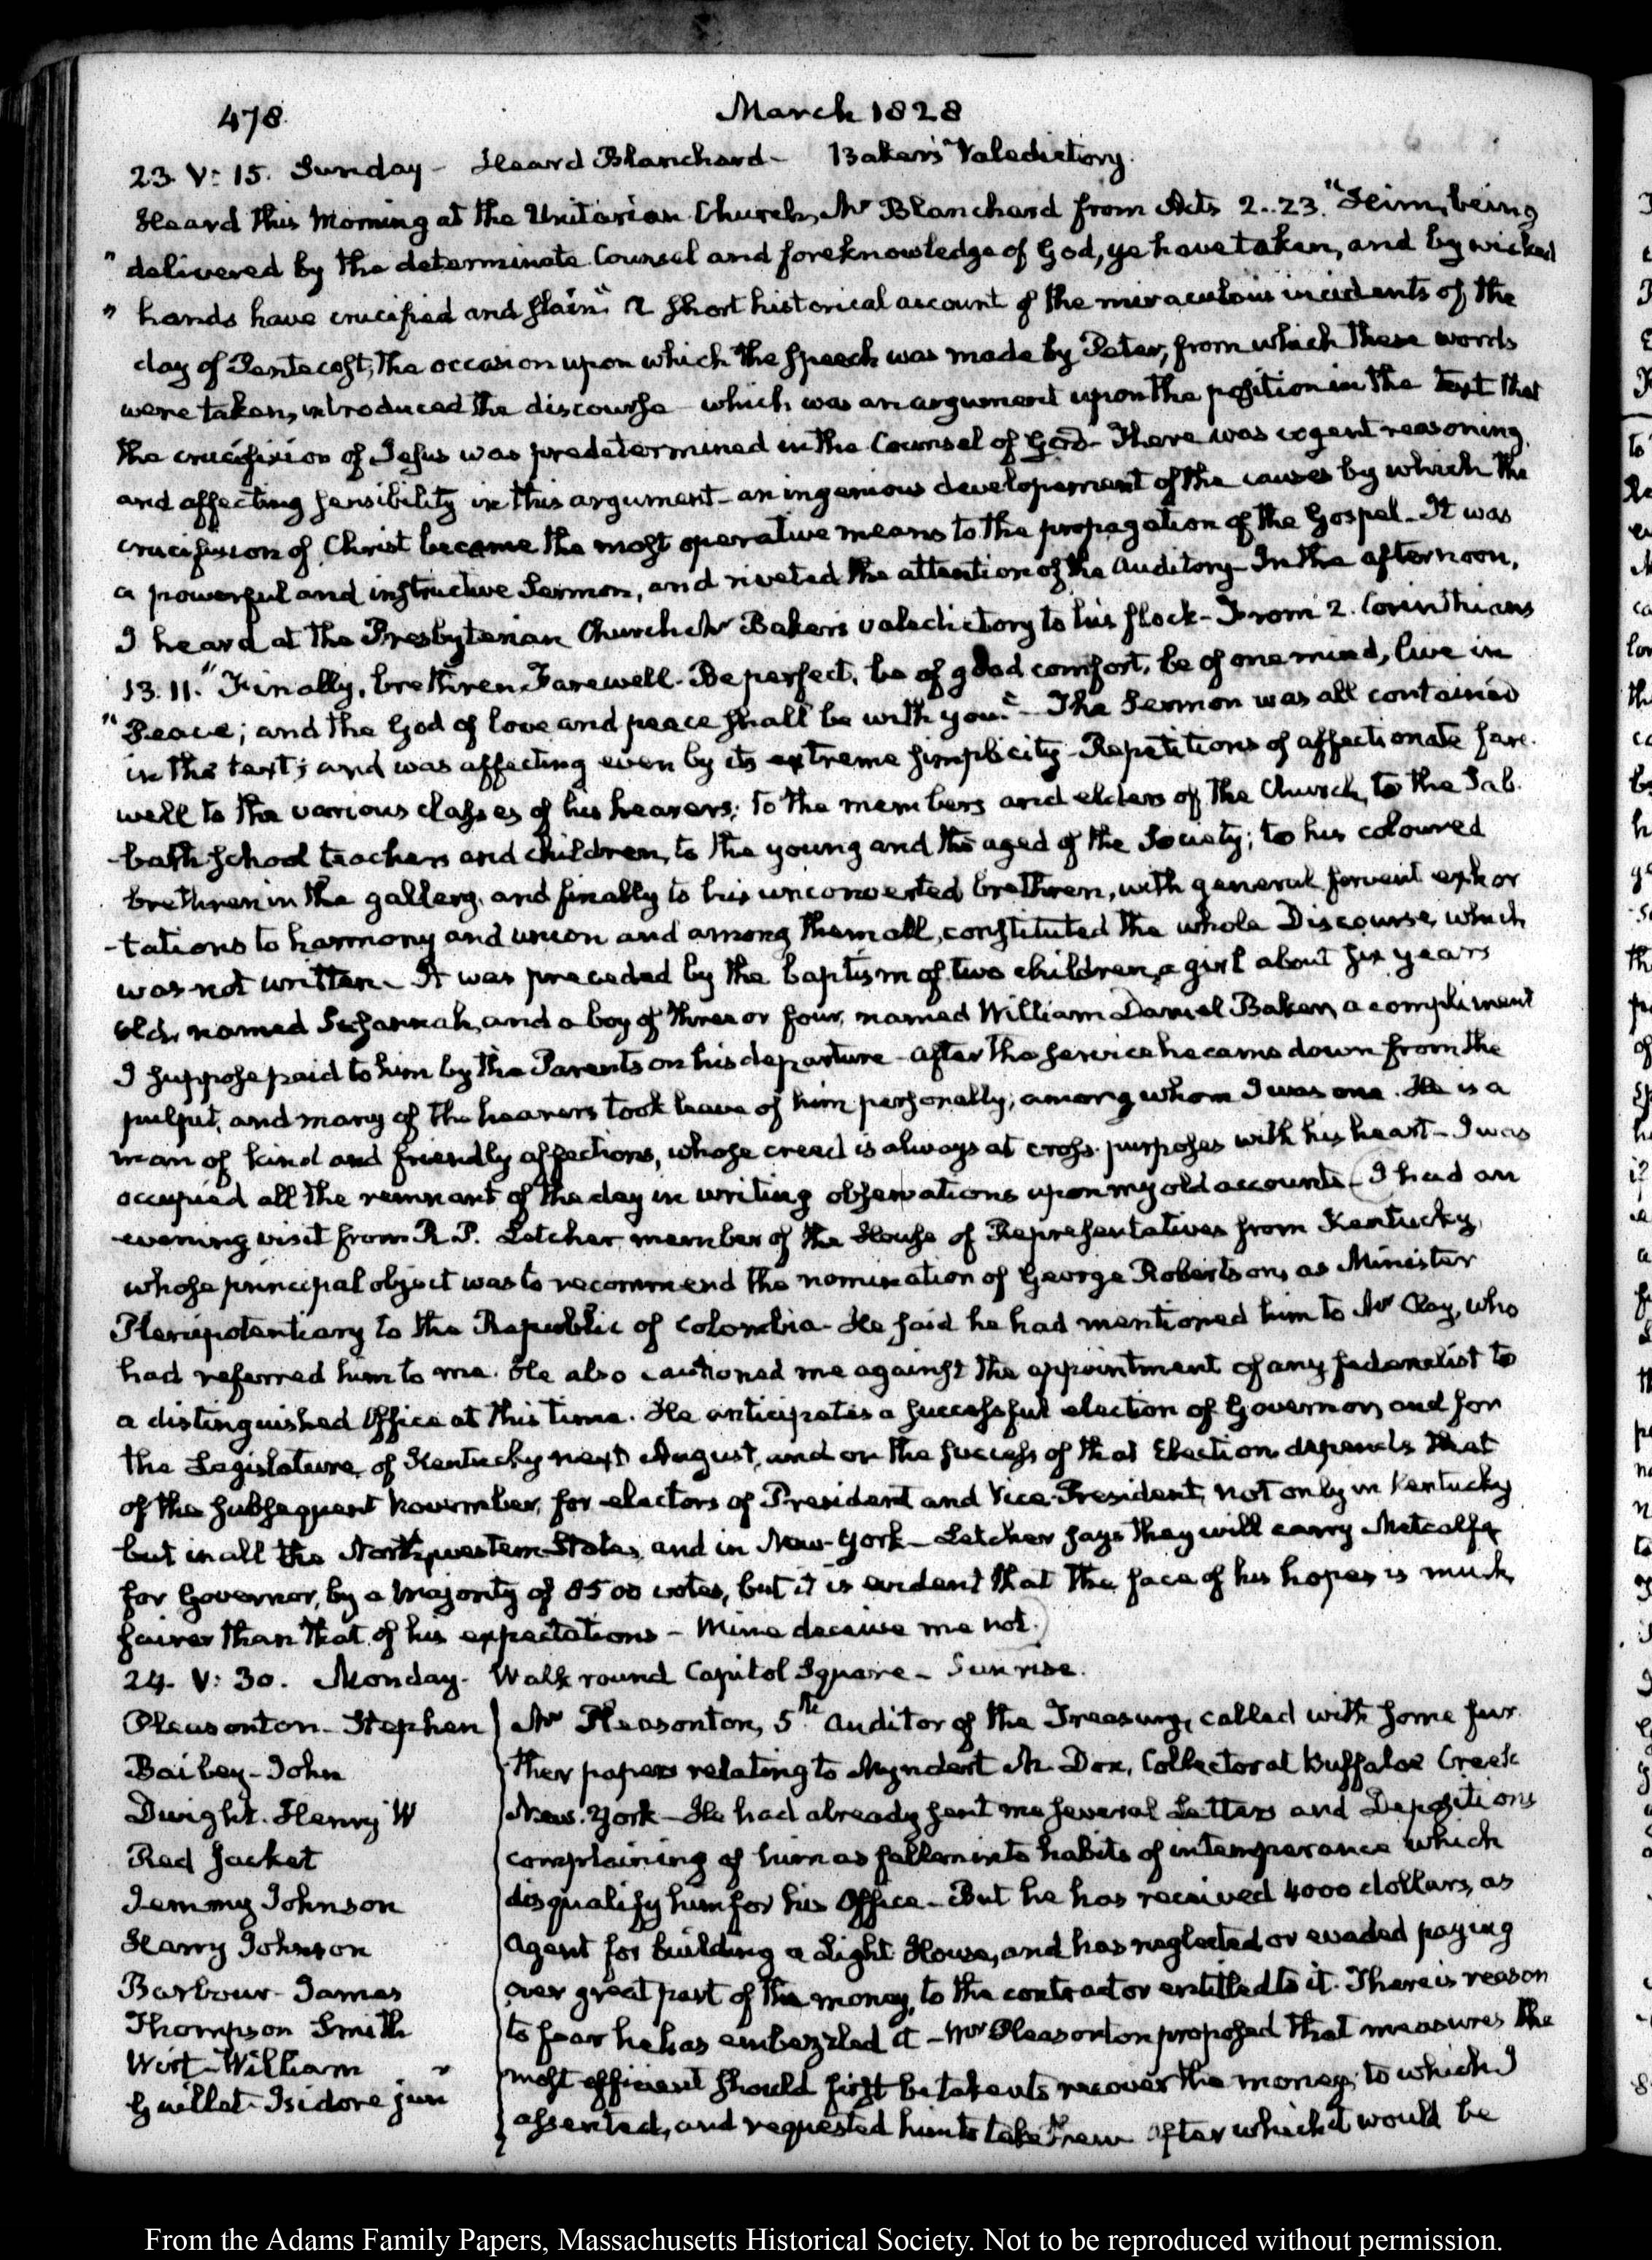 478
March 1828
23. V: 15. Sunday - Heard Blanchard - Baker's Valedictory.
Heard this Morning at the Unitarian Church, Mr Blanchard from Acts 2..23. "Him, being
" delivered by the determinate Counsel and foreknowledge of God, ye have taken, and by wicked
" hands have crucified and slain." A short historical account of the miraculous incidents of the
day of Pentecost, the occasion upon which the speech was made by Peter, from which these words
were taken, introduced the discourse - which was an argument upon the position in the text that
the crucifixion of Jesus was predetermined in the Counsel of God - There was cogent reasoning,
and affecting sensibility in this argument - an ingenious developement of the causes by which the
crucifixion of Christ became the most operative means to the propagation of the Gospel - It was
a powerful and instructive Sermon, and riveted the attention of the auditory - In the afternoon,
I heard at the Presbyterian Church Mr Baker's valedictory to his flock - From 2. Corinthians
13. 11. "Finally, brethren Farewell. Be perfect, be of good comfort, be of one mind, live in
" Peace; and the God of love and peace shall be with you." - The Sermon was all contained
in the text; and was affecting even by its extreme simplicity - Repetitions of affectionate fare-
well to the various classes of his hearers; to the members and elders of the Church, to the Sab-
-bath school teachers and children, to the young and the aged of the Society; to his coloured
brethren in the gallery, and finally to his unconverted brethren, with general fervent exhor
-tations to harmony and union and among them all, constituted the whole Discourse, which
was not written - It was preceded by the baptism of two children, a girl about six years
old, named Susannah, and a boy of three or four, named William Daniel Baker, a compliment
I suppose paid to him by the Parents on his departure - After the service he came down from the
pulpit, and many of the hearers took leave of him personally; among whom I was one. He is a
man of kind and friendly affections, whose creed is always at cross-purposes with his heart - I was
occupied all the remnant of the day in writing observations upon my old accounts - (I had an
evening visit from R. P. Letcher member of the House of Representatives from Kentucky,
whose principal object was to recommend the nomination of George Robertson, as Minister
Plenipotentiary to the Republic of Colombia - He said he had mentioned him to Mr Clay, who
had referred him to me. He also cautioned me against the appointment of any federalist to
a distinguished Office at this time. He anticipates a successful election of Governor, and for
the Legislature, of Kentucky next August, and on the success of that Election depends that
of the subsequent November, for electors of President and Vice-President, not only in Kentucky
but in all the Northwestern States, and in New-York - Letcher says they will carry Metcalfe
for Governor, by a majority of 8500 votes, but it is evident that the face of his hopes is much
fairer than that of his expectations - Mine deceive me not.)
24. V: 30. Monday. Walk round Capitol Square - Sunrise.
Pleasonton - Stephen
Bailey - John
Dwight. Henry W
Red Jacket
Jemmy Johnson
Harry Johnson
Barbour - James
Thompson Smith
Wirt - William
Guillet - Isidore junr
Mr Pleasonton, 5th Auditor of the Treasury, called with some fur-
ther papers relating to Myndert M. Dox, Collector at Buffaloe Creek
New-York - He had already sent me several Letters and Depositions
complaining of him as fallen into habits of intemperance which
disqualify him for his Office - But he has received 4000 dollars, as
Agent for building a Light-House, and has neglected or evaded paying
over great part of the money, to the contractor entitled to it. There is reason
to fear he has embezzled it - Mr Pleasonton proposed that measures the
most efficient should first be taken to recover the money; to which I
assented, and requested him to take them after which it would be
From the Adams Family Papers, Massachusetts Historical Society. Not to be reproduced without permission.